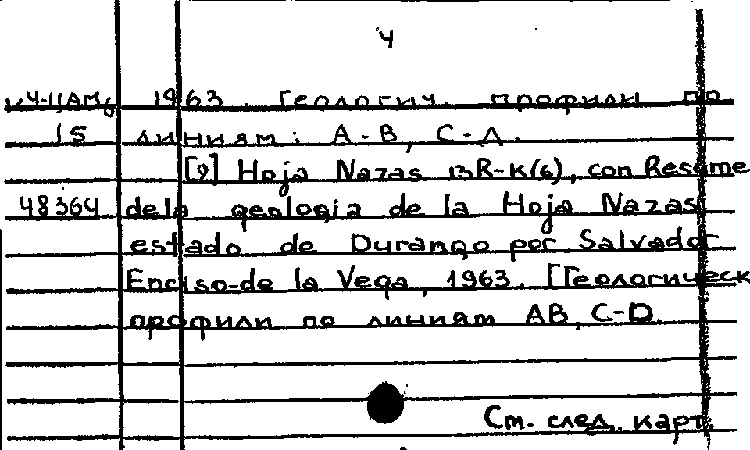 4
1963. Геологич. профили по
15 линиям: А-В, С-Д.
[9] Hoja Nazas 13R-K(6), con Resúme
48364 dela geologia de la Hoja Nazas,
estado de Durango por Salvador
Enciso-de la Vega, 1963. [Геологическ
профили по линиям AB, C-D
См. след. карт.